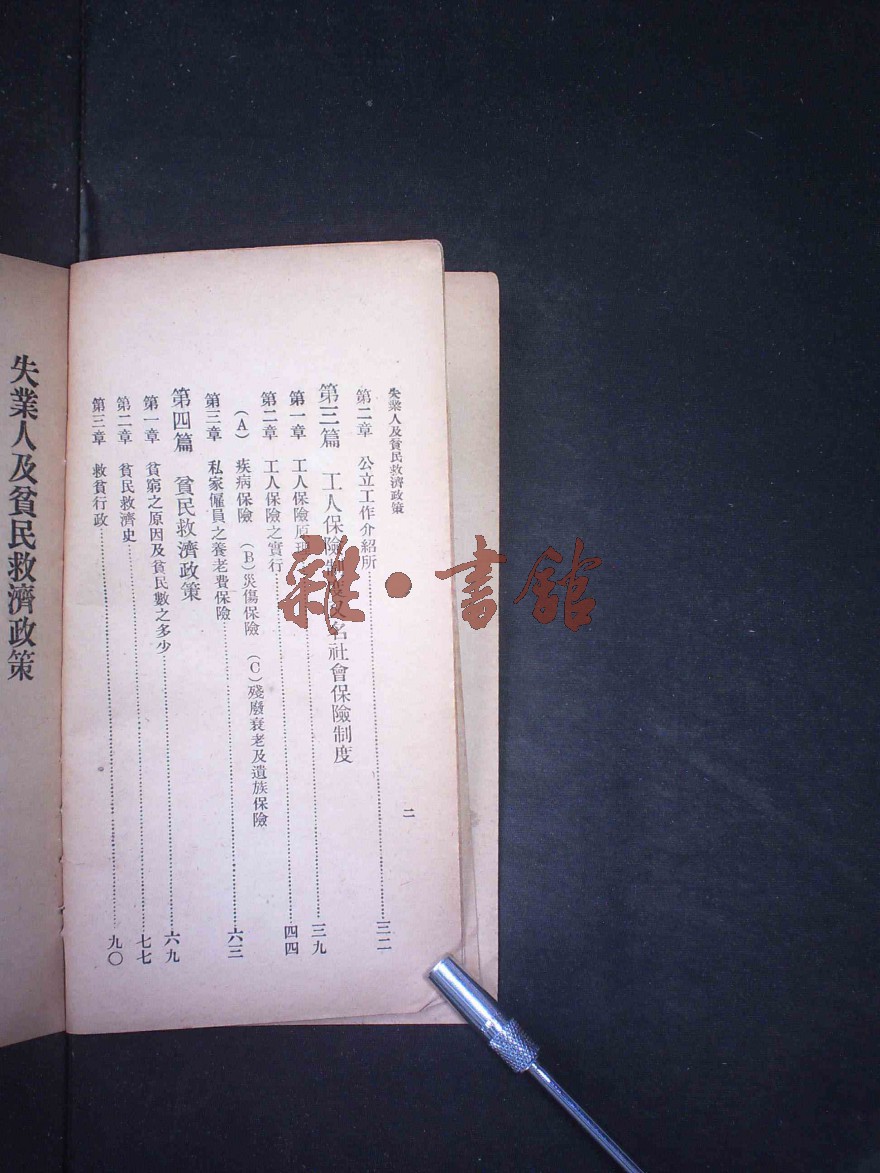 失業人及貧民救濟政策
二
第二章　公立工作介紹所……三二
第三篇　工人保險制度又名社會保險制度
第一章　工人保險原理……三九
第二章　工人保險之實行……四四
（A）疾病保險　（B）災傷保險　（C）殘廢衰老及遺族保險
第三章　私家僱員之養老費保險……六三
第四篇　貧民救濟政策
第一章　貧窮之原因及貧民數之多少……六九
第二章　貧民救濟史……七七
第三章　救貧行政……九〇
失業人及貧民救濟政策
雜·書館